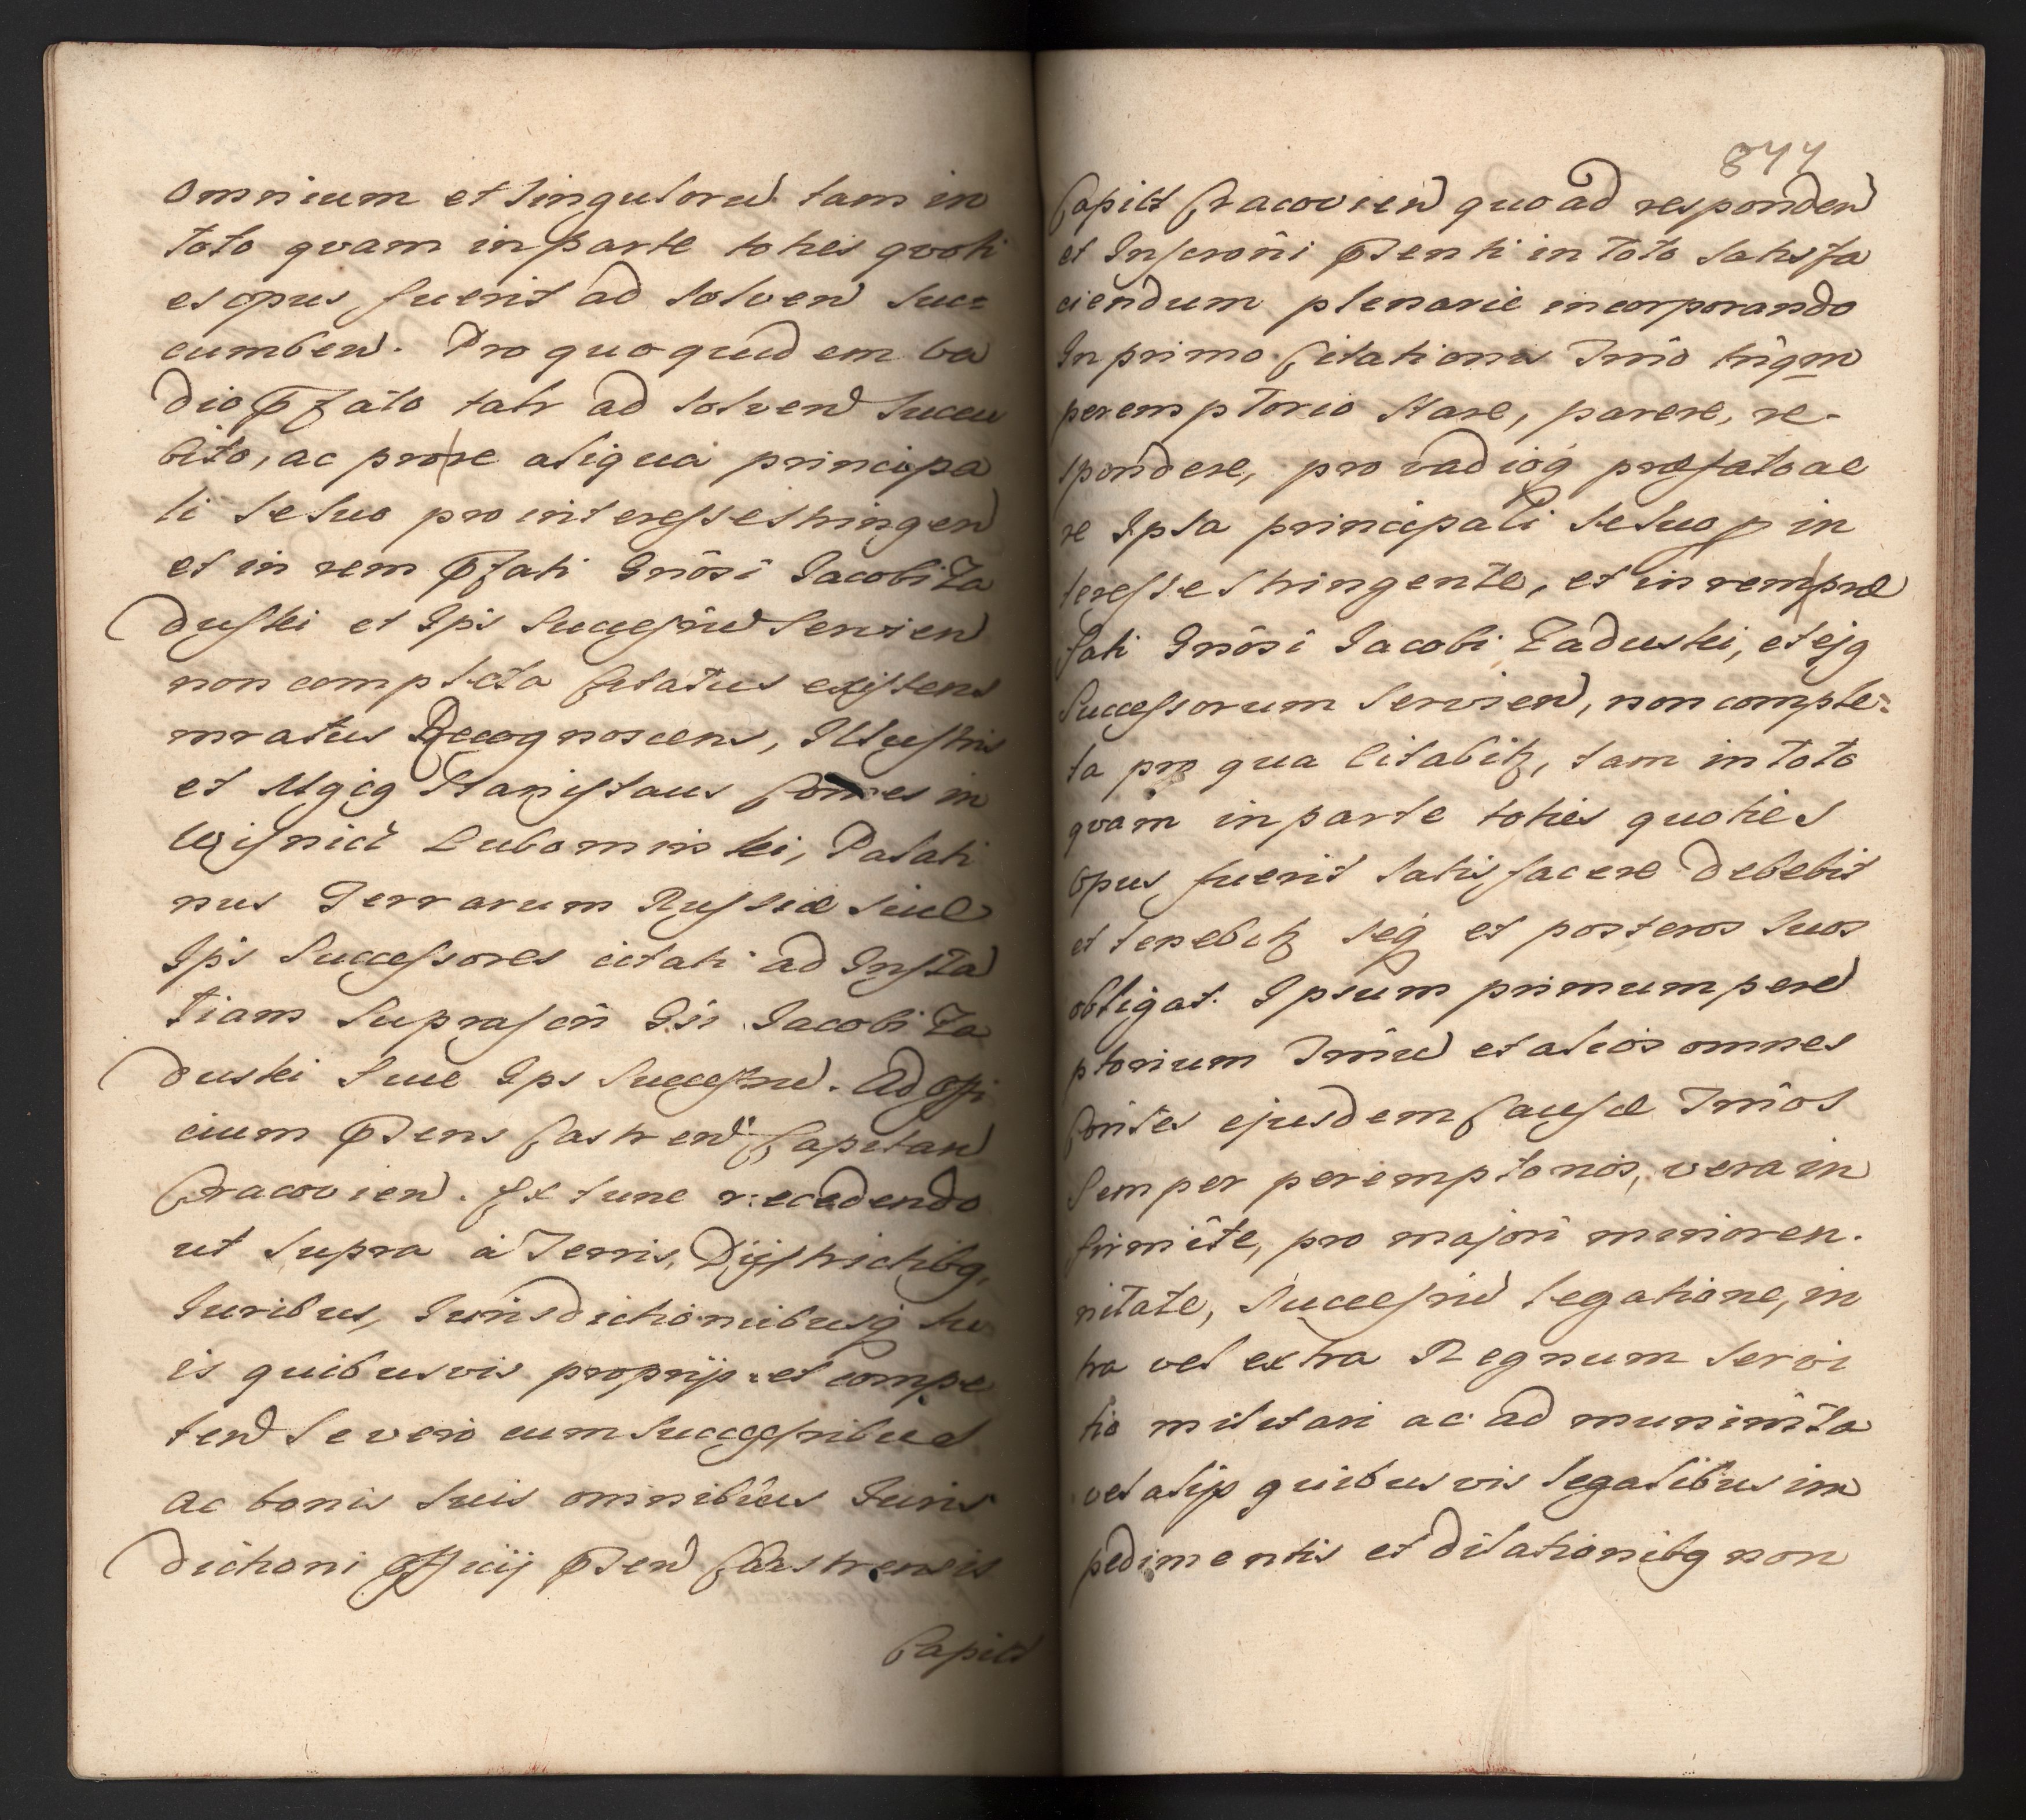 Omnium et singuloru tam in
toto qvam in parte toties qvoti
es opus fuerit ad solven suc=
cumben. Pro quo quid em va
dio p̄fato tali ad solven succu
bito, ac pro re aliqua principa
li se suo pro interesse stringen
et in rem p̄fati Gnôsi Iacobi Za
duski et Ips succesrū servien
non completa Citatus existens
mratus Recognoscens, Illustris
et Mgcq Stanislaus Comes in
Wisnicz Lubomirski, Palati
nus Terrarum Russiæ siue
Ips Successores citati ad Insta
tiam suprascri Gsi Iacobi Za
duski siue Ips Succesrū. Ad offi
cium p̄sens Castren Capitan
Cracovien. Ex tunc recedendo
ut supra à Terris, Districtibq,
Iuribus, Iurisdictionibusq su
is quibusvis proprijs et compe
ten se vero cum succesribus
ac bonis suis omnibus Iuris
dictioni Officij p̄sen Castrensis
Capits
877
Capits Cracovien quo ad responden
et Inscrōni p̄senti in toto satisfa
ciendum plenarie incorporando
In primo Citationis Tmo tnqm
peremptorio stare, parere, re-
spondere, pro vadioq præfato ac
re Ipsa principali se suo p in
teresse stringente, et in rem præ
fati Gnôsi Iacobi Zaduski, et ejq
Successorum servien, non comple=
ta pro qua Citabitz, tam in toto
qvam in parte toties quoties
opus fuerit satisfacere debebit
et tenebitz seq et posteros suos
obligat. Ipsum primum perem
ptorium Tmū et alios omnes
sontes ejusdem Causæ Tmôs
semper peremptorios, vera in
firmite, pro majori minoren.
nitate, Succesrū legatione, in
tra vel extra Regnum servi
tio militari ac ad munimta
vel alijs quibusvis legalibus im
pedimentis et dilationibq non